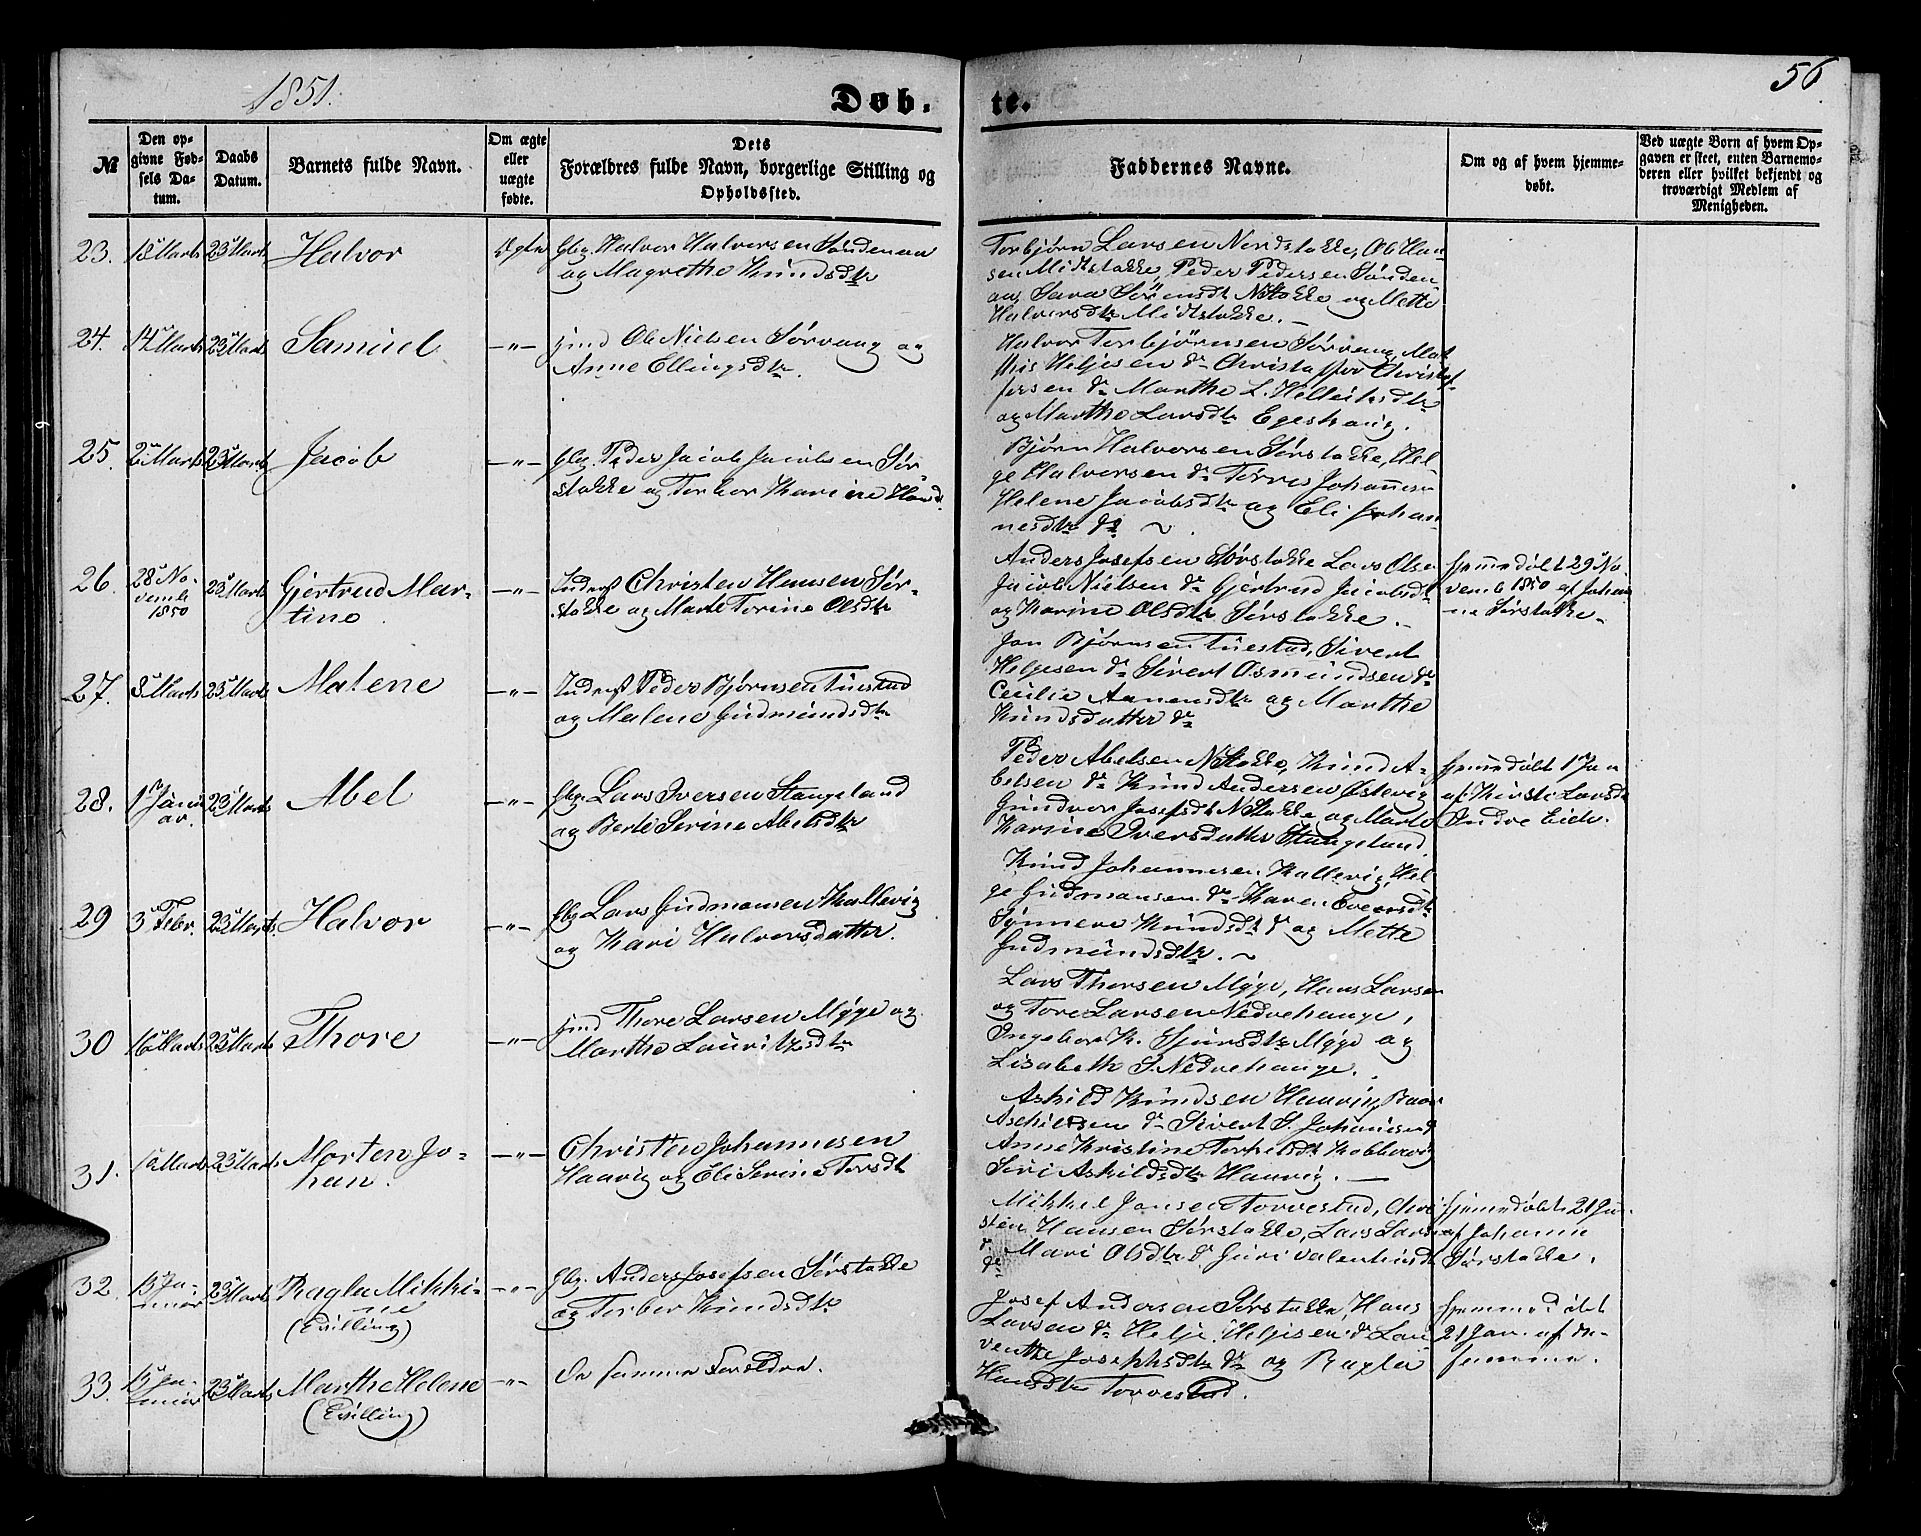 1851.
Døb. te.
56
№
Den opgivne Fødsels Datum.
Daabs Datum.
Barnets fulde Navn.
Om ægte eller uægte fødte.
Dets Forældres fulde Navn, borgerlige Stilling og Opholdssted.
Faddernes Navne.
Om og af hvem hjemmedøbt.
Ved uægte Børn af hvem Opgaven er skeet, enten Barnemoderen eller hvilket bekjendt og troværdigt Medlem af Menigheden.
23.
23 Marts
Halvor
Ægte
Gbg. Halvor Halvorsen Søndenaa
og Magrethe Knudsdtr
Torbjørn Larsen Nordstokke, Ole Han-
sen Midstokke, Peder Pedersen Sønden-
aa, Sara Sørensdt NStokke og Mette
Halvorsdtr Midtstokke.
24.
14 Marts
23 Marts
Samuel
—"—
Hmd Ole Nielsen Sørvaag og
Anne Ellingsdtr.
Halvor Torbjörnsen Sørvaag, Mat
this Heljesen do Christoffer Christof-
fersen do Marthe L. Helleitsdtr
og Marthe Larsdtr Egeshaug.
25.
2 Marts
23 Marts
Jacob
—"—
Gbg. Peder Jacob Jacobsen Sør-
stokke og Torbor Karine Hansd.
Bjørn Halvorsen Sørstokke, Hel-
ge Halvorsen do Torres Johannesen
Helene Jacobsdtr og Eli Johan-
nesdtr do
26.
28 No-
vemb
1850
23 Marts
Gjertrud Mar-
tine
—"—
Inderst Christen Hansen Sør-
stokke og Marte Torine Olsdtr
Anders Josefsen Sørstokke Lars Olsen
Jacob Nielsen do Gjertrud Jacobsdt
og Karine Olsdtr Sørstokke.
Hjemedøbt 29 No-
vemb 1850 af Johan-
ne Sørstokke.
27.
8 Marts
23 Marts
Malene
—"—
Inderst Peder Bjørnsen Tuestad
og Malene Gudmundsdtr
Jon Bjørnsen Tuestad, Sivert
Helgesen do Sivert Osmundsen do
Cecilie Aanensdtr og Marthe
Knudsdatter do
28.
1 Janu
ar.
23 Marts
Abel
—"—
Gbg. Lars Iversen Stangeland
og Berte Serine Abelsdtr
Peder Abelsen NStokke, Knud A-
belsen do Knud Andersen Østevig
Gundvor Josefsdt NStokke og Marte
Karine Iversdatter Stangeland
Hjemedøbt 1 Jan
af Kirsti Larsdtr
Indre Eide.
29
3 Febr.
23 Marts
Halvor
—"—
Gbg Lars Gudmonsen Kallevig
og Kari Halvorsdatter.
Knud Johannesen Kallevig, Hel-
ge Gudmonsen do Karen Eversdtr
Sønneve Knudsdt do og Mette
Gudmundsdtr.
30
16 Marts
23 Marts
Thore
—"—
Hmd Thore Larsen Myge og
Marthe Lauritzsdtr
Lars Thorsen Myge, Hans Larsen
og Tore Larsen Nedrehauge,
Ingebor K. Sjursdtr Myge og
Lisabeth S. Nedrehauge.
31.
16 Marts
23 Marts
Morten Jo-
han.
—"—
Christen Johannesen
Haavig og Eli Serine Torsdt
Askild Knudsen Haavig, Baar
Aschildsen do Sivert S. Johannesen do
Anne Kristine Torkelsdt Kobbervig
Siri Askildsdtr Haavig.
32.
15 Ja-
nuar
23 Marts
Ragla Mikki-
ne
(Tvilling)
—"—
Gbg. Anders Josefsen Sørstokke
og Torbor Knudsdtr
Mikkel Jansen Torvestad, Chri
sten Hansen Sørstokke, Lars Larsen
do Mari Olsdtr do Guri Valentinsdt
Hjemedøbt 21 Jan.
af Johanne
Sørstokke.
33.
15 Ja-
nuar
23 Marts
Marthe Helene
(Tvilling)
—"—
De samme Foreldre.
Josef Andersen Sørstokke, Hans
Larsen do Helje Heljesen do Lau
ventse Josephsdtr do og Ragla
Hansdtr Torvestad.
Hjemmedøbt
21 Jan. af den-
samme.